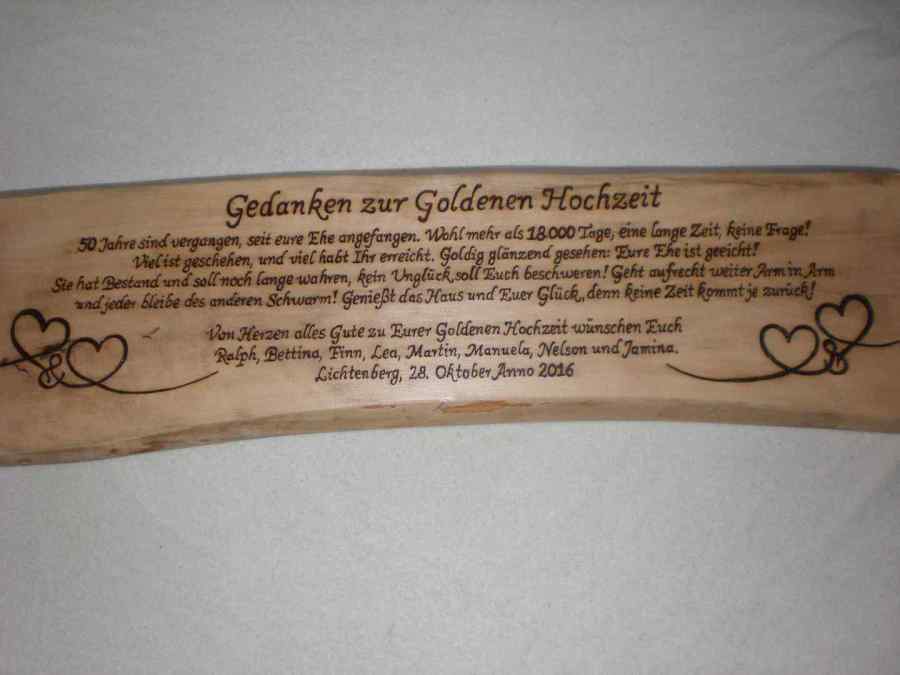 Gedanken zur Goldenen Hochzeit
50 Jahre sind vergangen, seit eure Ehe angefangen. Wohl mehr als 18.000 Tage, eine lange Zeit, keine Frage!
Viel ist geschehen, und viel habt Ihr erreicht. Goldig glänzend gesehen: Eure Ehe ist geeicht!
Sie hat Bestand und soll noch lange währen, kein Unglück soll Euch beschweren! Geht aufrecht weiter Arm in Arm
und jeder bleibe des anderen Schwarm! Genießt das Haus und Euer Glück, denn keine Zeit kommt je zurück!
Von Herzen alles Gute zu Eurer Goldenen Hochzeit wünschen Euch
Ralph, Bettina, Finn, Lea, Martin, Manuela, Nelson und Jamina.
Lichtenberg, 28. Oktober Anno 2016